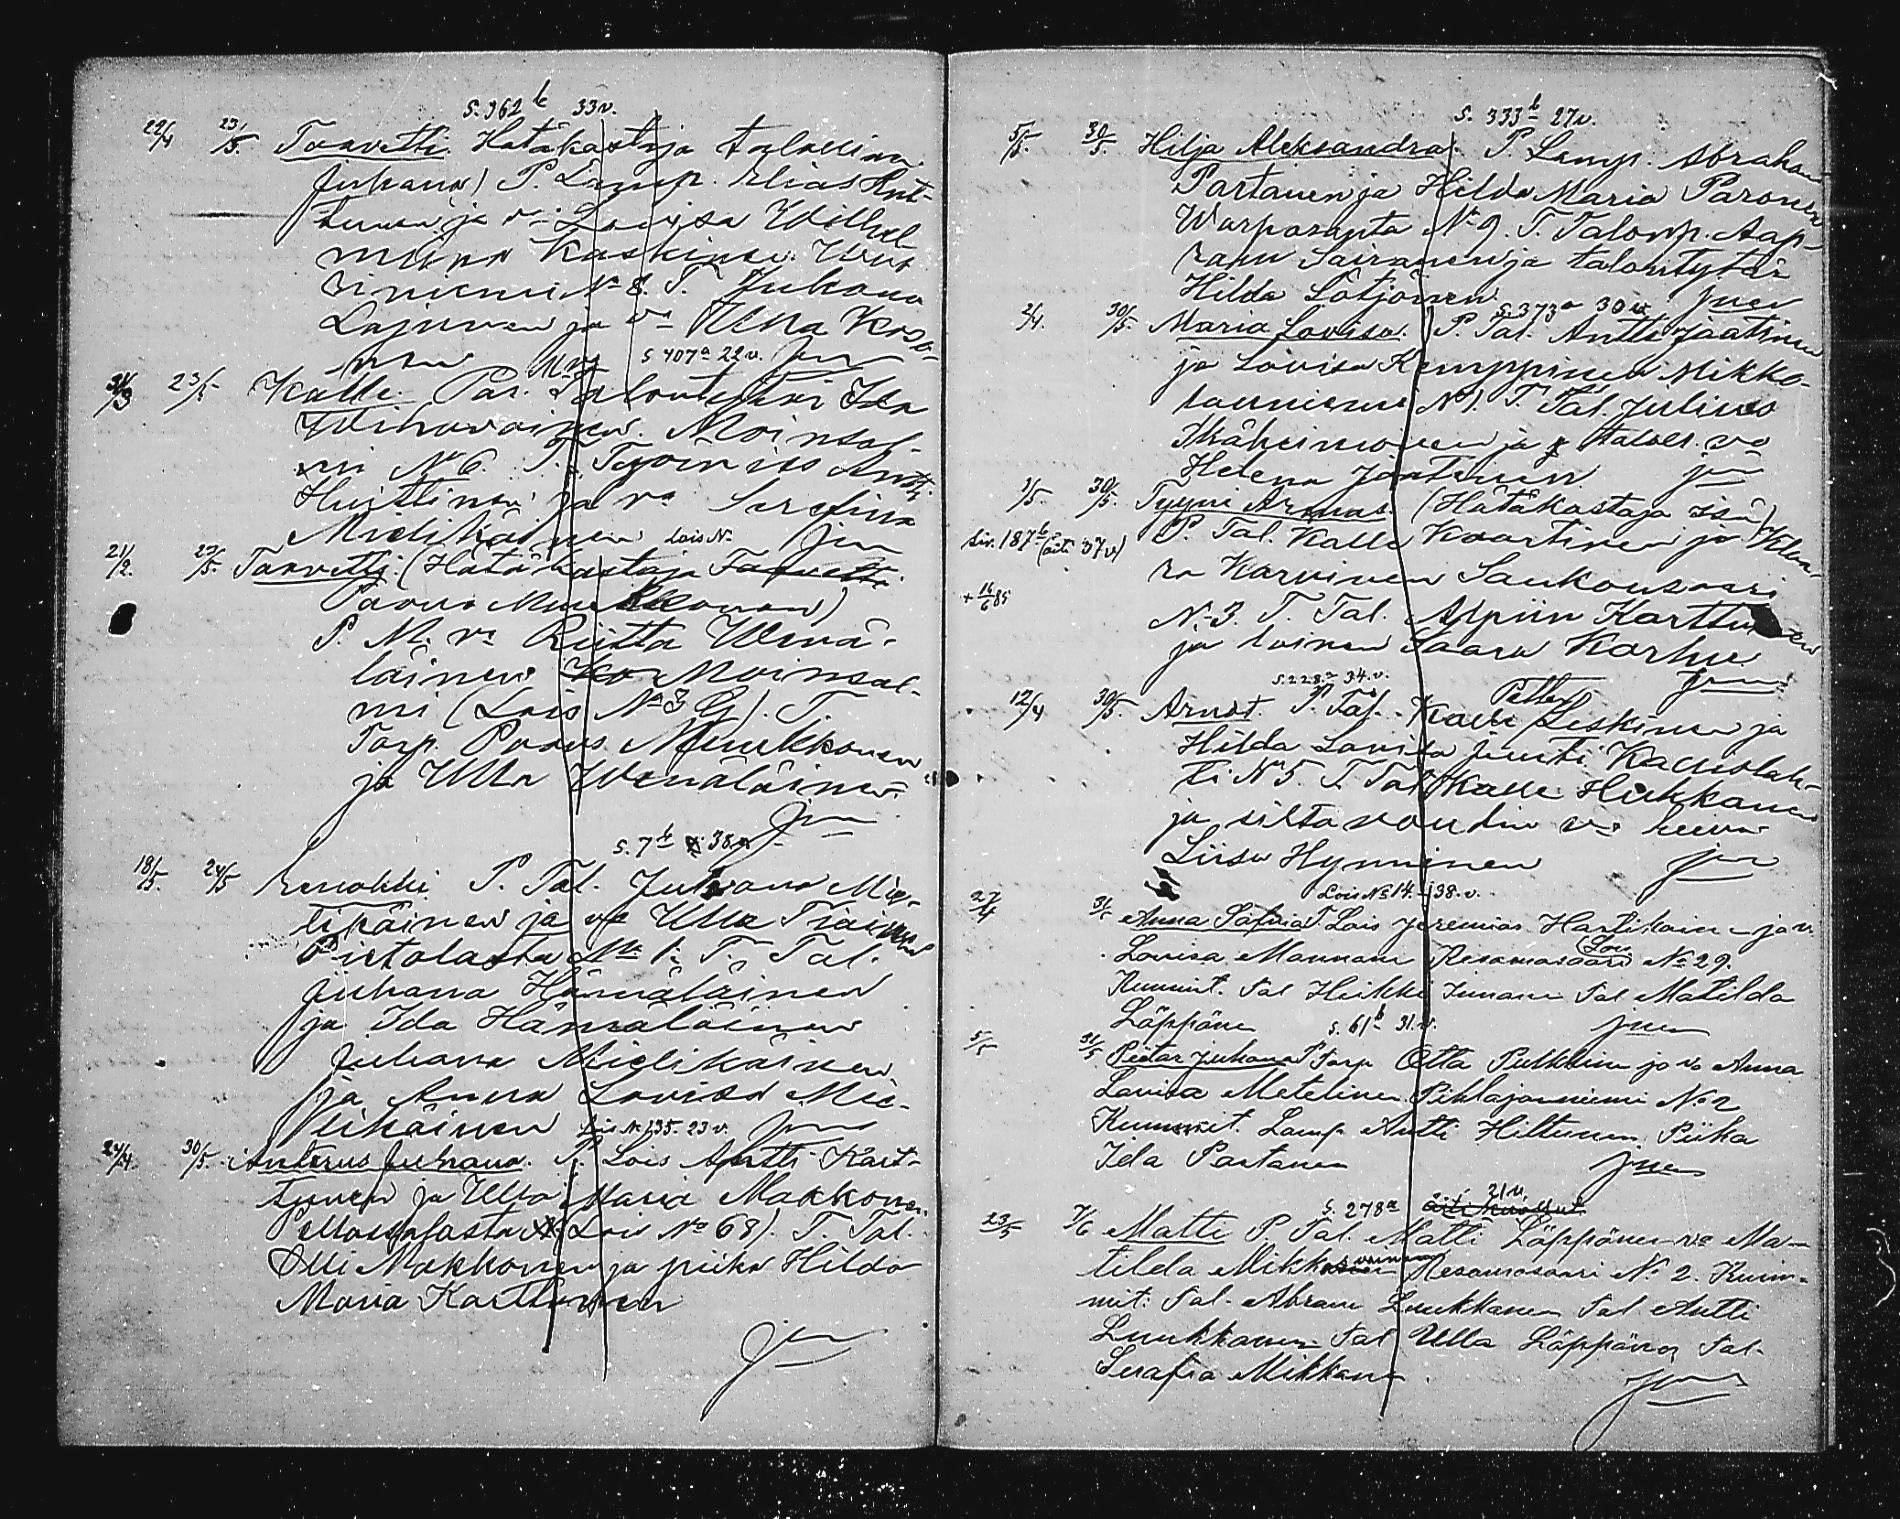 S. 362 b 33 v.
22/4 23/5. Taavetti. Hätäkastaja talollinen
Juhana) P. Lamp. Elias Hut-
tunen ja v:o Loviisa Wilhel
miina Kaskinen.
niemi No 8. T. Juhana
Lajunen ja v:o Ulla Koso-
nen
S 407 a 22 v. Jnen
31/3 23/5 Kalle. Par. Ida
Moinsal-
mi No 6. T. Antti
Huttinen ja v:a Serefina
Mielikäinen Lois No Jnen
21/2. 23/5. Taavetti. (Hätäkastaja Taavetti
Paavo Muukkonen)
P. M. v:a Riitta Wenä-
läinen Ko Moinsal-
mi (Lois No 3 G). T.
Torp. Paavo Muukkonen
ja Ulla Wenäläinen
Jnen
S. 7 b 38 v
18/5. 24/5 Eenokki P. Tal. Juhana Mie-
likäinen ja v:o Ulla Tiainen
Pietolasta No 1. T. Tal.
Juhana Hämäläinen
ja Ida Hämäläinen
Juhana Mielikäinen
ja Anna Loviisa Mie-
likäinen Lois N. 135. 23 v. Jnen
24/4. 30/5. Anterus Juhana. P. Lois Antti Kart-
tunen ja Ulla Maria Makkonen
Pellossalosta (Lois No 68). T. Tal.
Olli Makkonen ja piika Hilda
Maria Karttunen
Jnen
S. 333 b 27 v.
5/5 30/5. Hilja Aleksandra. P. Lamp. Abraham
Partanen ja Hilda Maria Paronen
Warparanta No 9. T. Talonp. Aap-
ramu Sairanen ja talontytär
Hilda Lötjönen Jnen
S. 373 a 30 v.
2/4. 30/5. Maria Lovisa. P. Tal. Antti Jaatinen
ja Lovisa Kemppinen Mikko-
lanniemi No 1. T. Tal. Julius
Ikäheimonen ja taloll. v:o
Helena Jaatinen Jnen
1/5. 30/5. Tyyni Armas. (Hätäkastaja isä)
siv. 187 b (äiti 37 v) P. Tal. Kalle Kaartinen ja Klaa-
ra Karvinen Saukonsaari
+ 16/6 85 No 3. T. Tal. Alpiin Karttunen
ja loinen Saara Karhu
S. 228 a 34. v. Jnen
Petter
12/4 30/5. Arvot. P. Tal. Kalle Leskinen ja
Hilda Lovisa Juuti Kauvolah-
ti No 5. T. Tal Kalle Hukkanen
ja siltavoudin v:o
Liisa Hynninen Jnen
Lois No 14. 38. v.
27/4 31/5 Anna Sofia P. Lois Jeremias Hartikainen ja v.
Lovisa Mannani Resamosaari (Lois No 29.
Kummit. Tal Heikki Immonen Tal Matilda
Läppänen S. 61 b 31. v. Jnen
5/5 31/5 Pietar Juhana P. Torp Otto Pulkkinen ja v:o Anna
Lovisa Metelinen Pihlajaniemi No 2
Kummit. Lamp Antti Hiltunen Piika
Ida Partanen Jnen
S. 278 a 21 v.
23/5 7/6 Matti P. Tal. Matti Läppänen v:o Ma-
tilda Mikkonen Resamosaari No 2. Kum-
mit: Tal. Abram Luukkanen Tal. Antti
Luukkanen Tal Ulla Läppänen Tal.
Serafia Mikkanen
Jnen